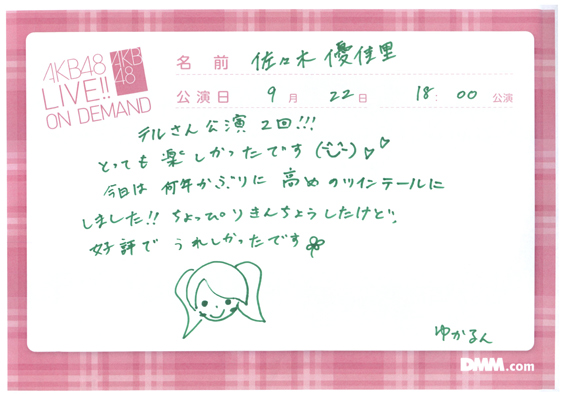 AKB48
LIVE!!
ON DEMAND
AKB
48
名前 佐々木優佳里
公演日 9月 22日 18:00 公演
テルさん公演 2回!!!
とっても楽しかったです
今日は 何年かぶりに 高めのツインテールに
しました!! ちょっぴりきんちょうしたけど、
好評で うれしかったです
ゆかるん
DMM.com